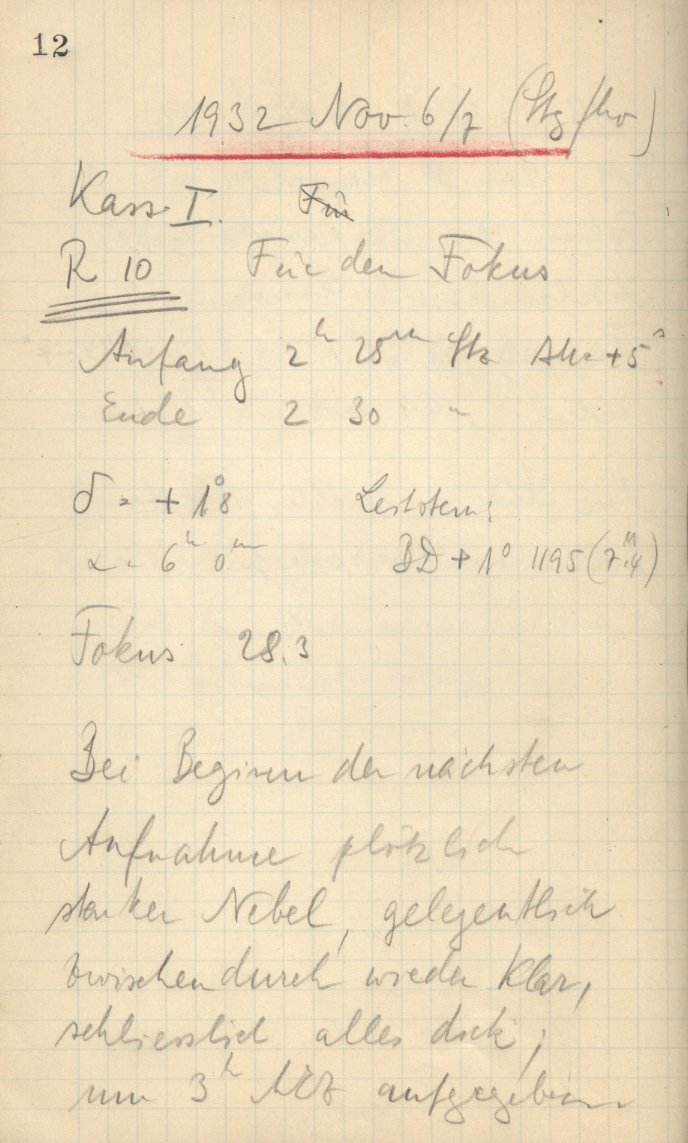 12
1932 Nov. 6/7 (Stg/hv)
Kass I. Für
R 10 Für den Fokus
Anfang 2h 25m Stz +5
Ende 2 30 "
δ = + 1°8 Leitstern:
α = 6h 0m BD + 1° 1195 (7M.4)
Fokus 28.3
Bei Beginn der nächsten
Aufnahme plötzlich
starker Nebel, gelegentlich
zwischendurch wieder klar,
schliesslich alles dick;
um 3h MEZ aufgegeben